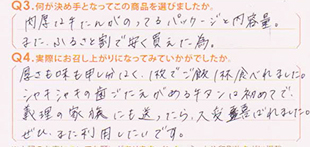 Q3.何が決め手となってこの商品を選びましたか。
肉厚な牛たんがのってるパッケージと内容量。
また、ふるさと割で安く買えた為。
Q4.実際にお召し上がりになってみていかがでしたか。
厚さも味も申し分なく、1枚でご飯1杯食べれました。
シャキシャキの歯ごたえがある牛タンは初めてで、
義理の家族にも送ったら、大変喜ばれました。
ぜひまた利用したいです。